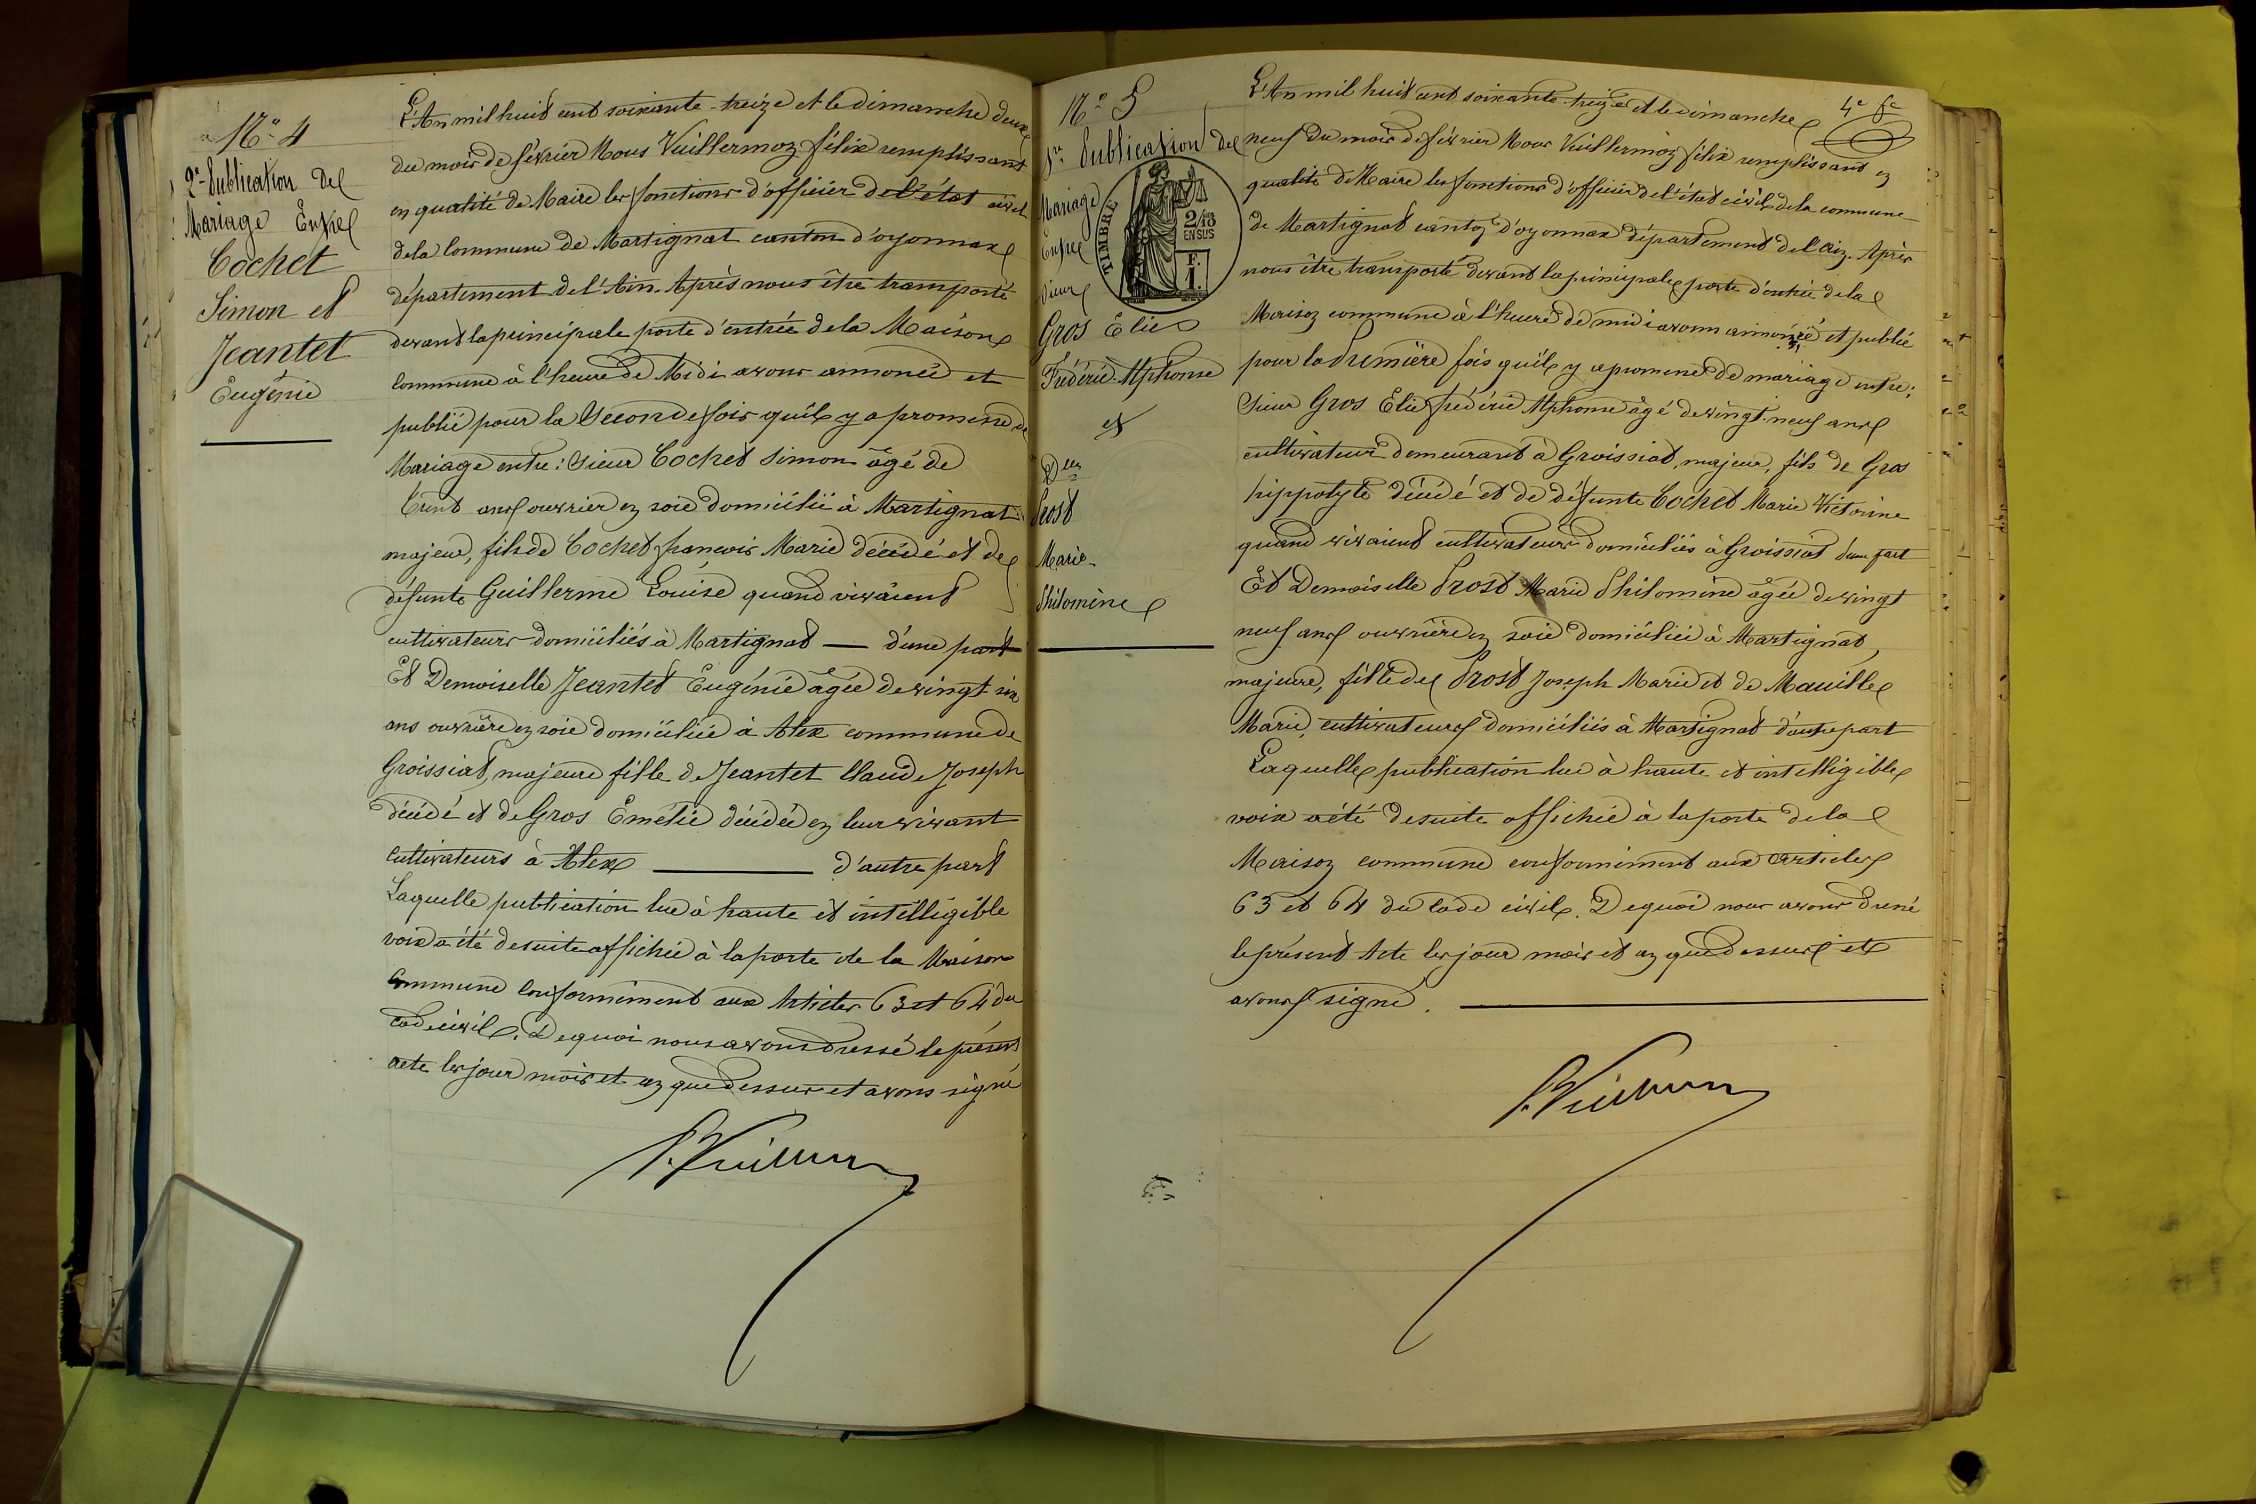 N° 4
2e Publication de
Mariage Entre
Cochet
Simon et
Jeantet
Eugénie
L'An mil huit cent soixante-treize et le dimanche deux
du mois de février Nous Vuillermoz félix remplissant
en qualité de Maire les fonctions d'officier de l'état civil
de la Commune de Martignat canton d'oyonnax
département de l'Ain. Après nous être transporté
devant la principale porte d'entrée de la Maison
Commune à l'heure de Midi avons annoncé et
publié pour la Seconde fois qu'il y a promesse de
Mariage entre : Sieur Cochet Simon âgé de
trent ans ouvrier en soie domicilié à Martignat
majeur, fils de Cochet françois Marie décédé et de
défunte Guillerme Louise quand vivaient
cultivateurs domiciliés à Martignat — d'une part
Et Demoiselle Jeantet Eugénie âgée de vingt six
ans ouvrière en soie domiciliée à Alex commune de
Groissiat, majeure fille de Jeantet Claude Joseph
décédé et de Gros Emélie décédée en leur vivant
cultivateurs à Alex — d'autre part
Laquelle publication lue à haute et intelligible
voix a été de suite affichée à la porte de la Maison
Commune Conformément aux Articles 63 et 64 du
code civil. De quoi nous avons dressé le présent
acte les jour mois et an que dessus et avons signé
F. Vuillerm
N° 5
1re Publication de
Mariage
Entre
Sieur
Gros Elie
Frédéric Alphonse
et
Dlle
Prost
Marie-
Philomène
TIMBRE
2/10
EN SUS
1 F.
4e fe
L'An mil huit cent soixante-treize et le dimanche
neuf du mois de février Nous Vuillermoz félix remplissant en
qualité de Maire les fonctions d'officier de l'état civil de la commune
de Martignat canton d'oyonnax département de l'Ain. Après
nous être transporté devant la principale porte d'entrée de la
Maison commune à l'heure de midi avons annoncé et publié
pour la Première fois qu'il y a promesse de mariage entre :
Sieur Gros Elie frédéric Alphonse âgé de vingt-neuf ans
cultivateur demeurant à Groissiat, majeur, fils de Gros
hippolyte décédé et de défunte Cochet Marie Victorine
quand vivaient cultivateurs domiciliés à Groissiat d'une part
Et Demoiselle Prost Marie Philomène âgée de vingt
neuf ans ouvrière en soie domiciliée à Martignat,
majeure, fille de Prost Joseph Marie et de Mauille
Marie, cultivateurs domiciliés à Martignat d'autre part
Laquelle publication lue à haute et intelligible
voix a été de suite affichée à la porte de la
Maison commune conformément aux articles
63 et 64 du Code civil. De quoi nous avons dressé
le présent Acte les jour mois et an que dessus et
avons signé.
F. Vuillerm